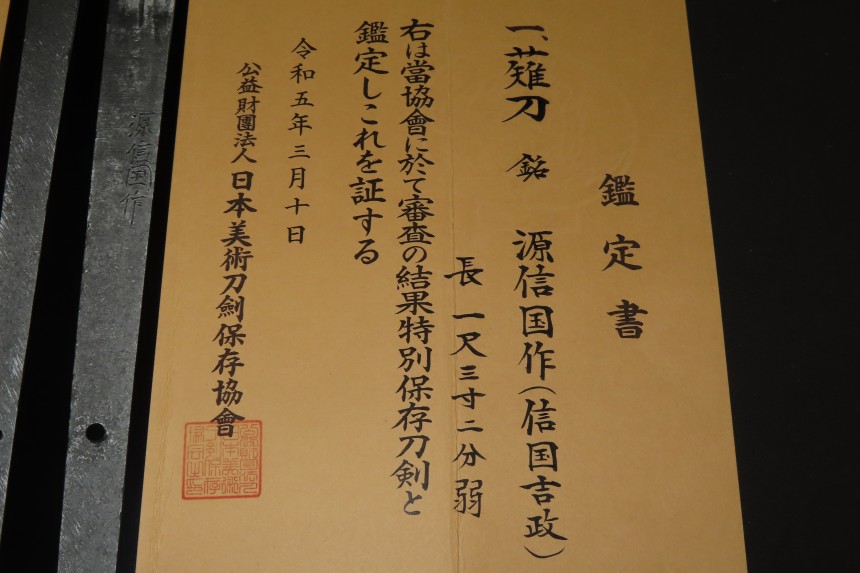 鑑定書
一、薙刀 銘 源信国作(信国吉政)
長 一尺三寸二分弱
右は當協會に於て審査の結果特別保存刀剣と
鑑定しこれを証する
令和五年三月十日
公益財團法人日本美術刀劍保存協會
源信国作